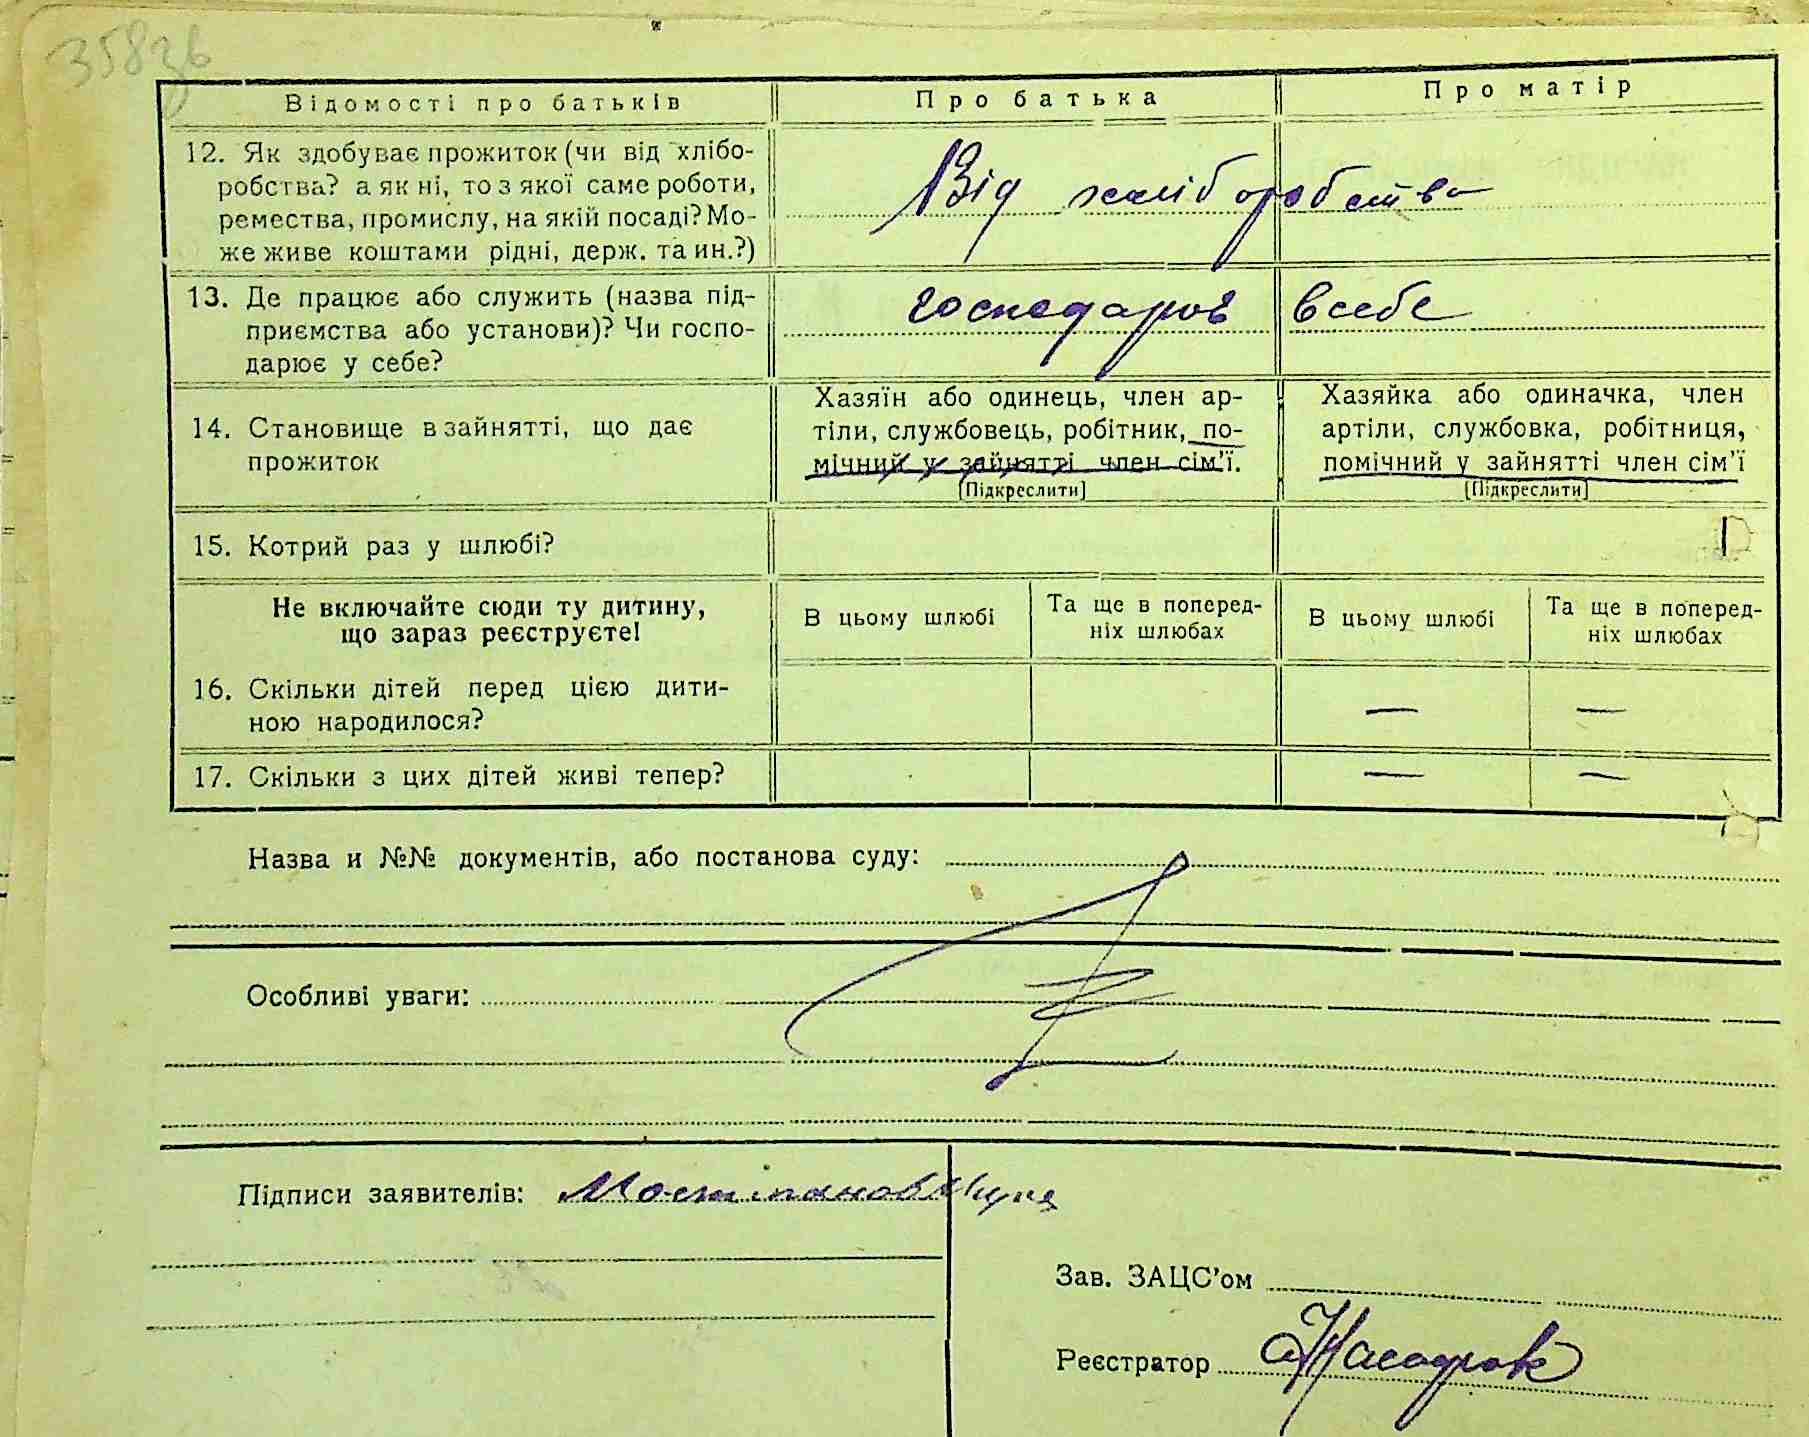 358зв
Відомості про батьків
Про батька
Про матір
12. Як здобуває прожиток (чи від хлібо-
робства? а як ні, то з якої саме роботи,
ремества, промислу, на якій посаді? Мо-
же живе коштами рідні, держ. та ин.?)
Від хліборобства
13. Де працює або служить (назва під-
приємства або установи)? Чи госпо-
дарює у себе?
господарює в себе
14. Становище в зайнятті, що дає
прожиток
Хазяїн або одинець, член ар-
тіли, службовець, робітник, по-
мічний у зайнятті член сім'ї.
[Підкреслити]
Хазяйка або одиначка, член
артіли, службовка, робітниця,
помічний у зайнятті член сім'ї
[Підкреслити]
15. Котрий раз у шлюбі?
1
Не включайте сюди ту дитину,
що зараз реєструєте!
В цьому шлюбі
Та ще в поперед-
ніх шлюбах
В цьому шлюбі
Та ще в поперед-
ніх шлюбах
16. Скільки дітей перед цією дити-
ною народилося?
— —
17. Скільки з цих дітей живі тепер?
— —
Назва и №№ документів, або постанова суду:
Особливі уваги:
Підписи заявителів:
Зав. ЗАЦС'ом
Реєстратор